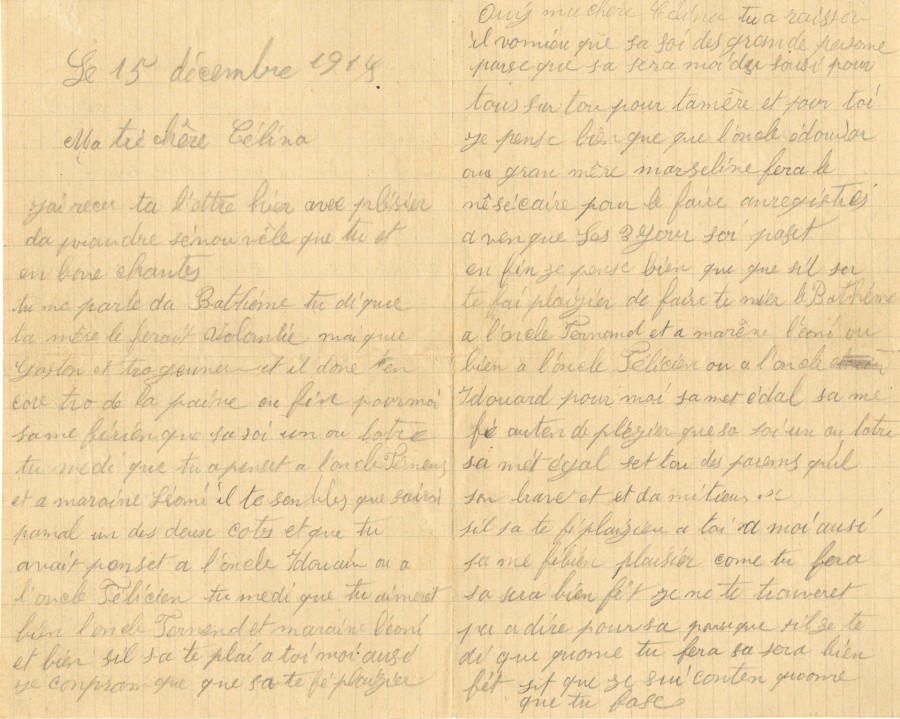 Le 15 décembre 1914
Ma trè chère Célina
jai recu ta l'ettre hier avec plésier
da prandre sénou vèle que tu et
en bone chantes
tu me parle da Bathéme tu di que
ta mère le ferait volontié mai que
Gaston et tro jeune et il done en
core tro de la paine en fin pour moi
sa me fé rien que sa soi un ou lotre
tu me di que tu a penset a l'oncle Fernens
et a maraine Léoni il te sembles que sairai
pamal un des deuse cots et que tu
avait panset a l'oncle Idouair ou a
l'oncle Félicien tu me di que tu aimeret
bien l'oncle Fernend et maraine léoni
et bien sil sa te plai a toi moi ausi
je conpran que que sa te fé plaizier
Ouis ma chère Célina tu a raisson
il vomiou que sa soi des grande persone
parse que sa sera moi du sousi pour
tous sur tou pour ta mère et pour toi
je pense bien que que l'oncle édouiar
ou gran mère marseline fera le
nésécaire pour le faire anregistrés
a ven que les 3 Your soi paset
en fin je pense bien que que sil sa
te fai plaizier de faire te nier le Bathéme
a l'oncle Fernand et a marène léoni ou
bien a l'oncle Félicien ou a l'oncle
Idouard pour moi sa met édal sa me
fé auten de plézier que sa soi un ou lotre
sa mét égal set tou des parens qu'il
son brave et et da mitieus
sil sa te fé plaizieu a toi a moi ausi
sa me fé bien plaisier come tu fera
sa sera bien fét je ne te trouveret
pa a dire pour sa parsque sil se te
di que quome tu fera sa sera bien
fét sit que je sui conten quome
que tu fase